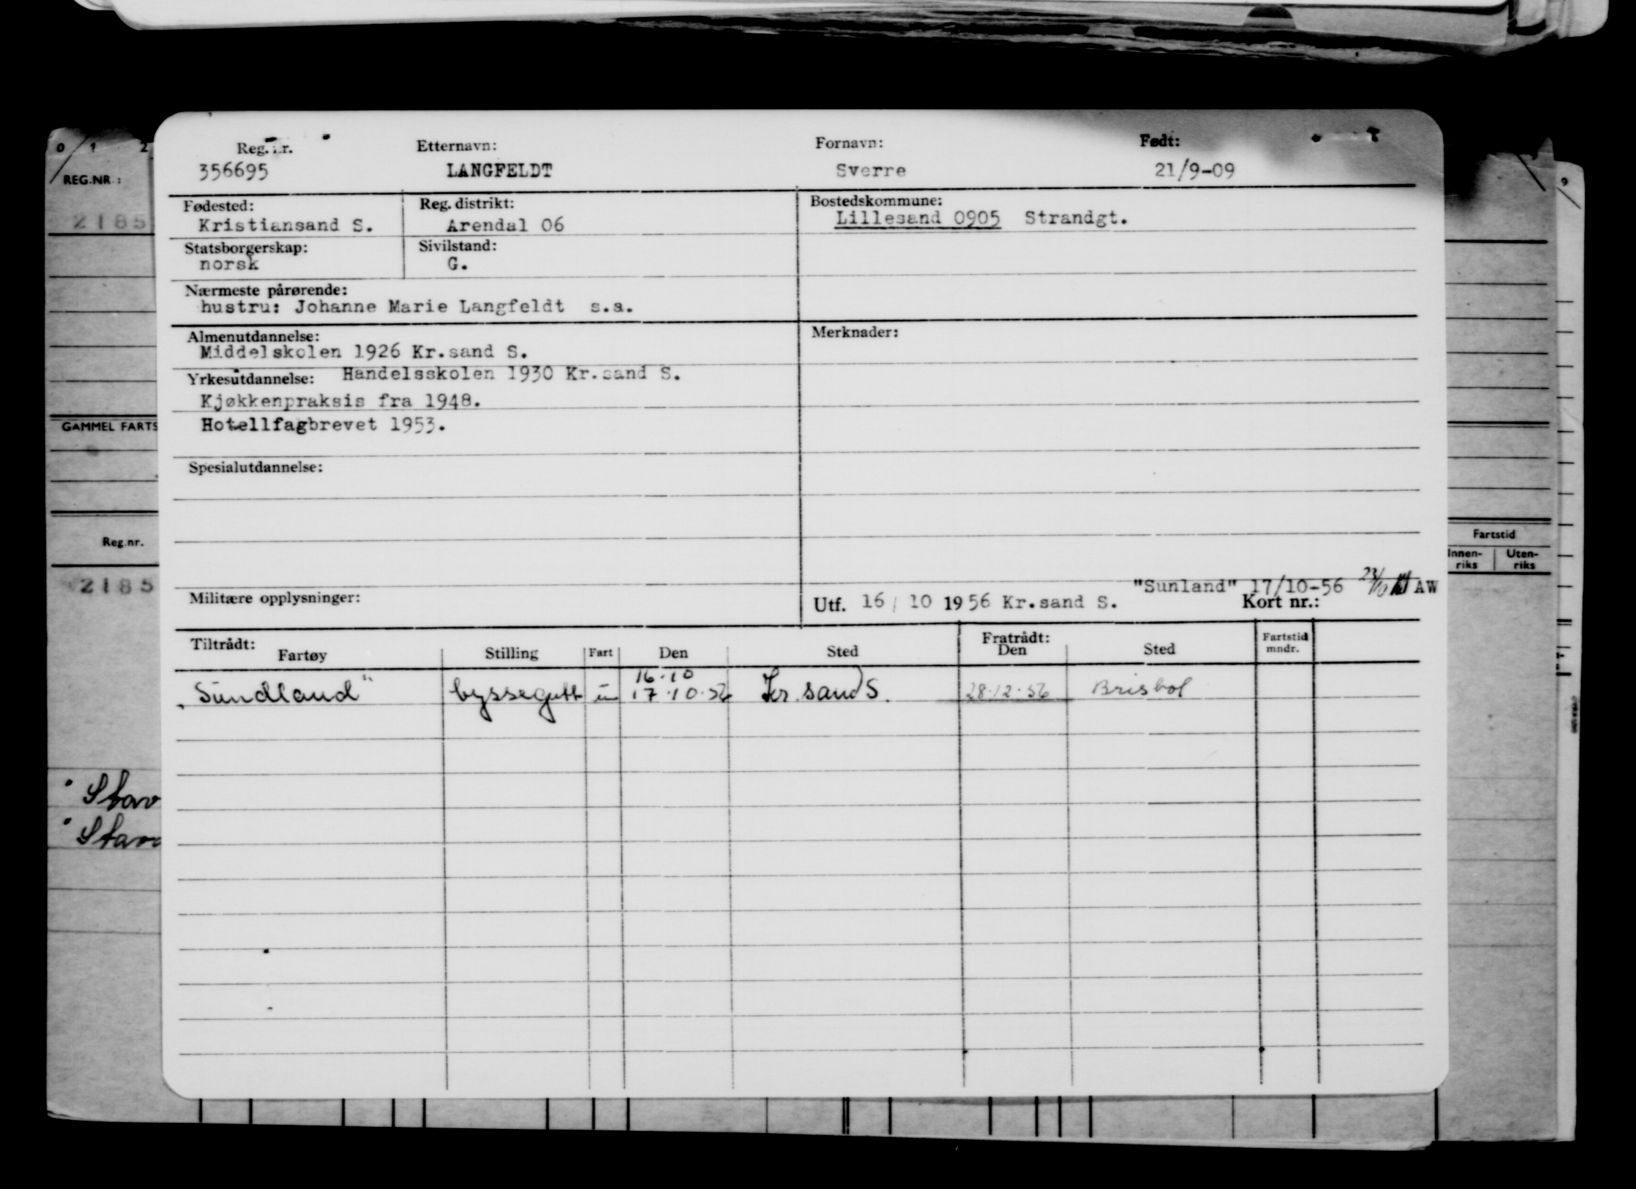 0 1 2
REG.NR :
2185
GAMMEL FARTS
Reg.nr.
2185
Stav
Stava
9
Fartstid
Innen-riks Uten-riks
Reg.nr. Etternavn: Fornavn: Født:
356695 LANGFELDT Sverre 21/9-09
Fødested: Reg. distrikt: Bostedskommune:
Kristiansand S. Arendal 06 Lillesand 0905 Strandgt.
Statsborgerskap: Sivilstand:
norsk G.
Nærmeste pårørende:
hustru: Johanne Marie Langfeldt s.a.
Almenutdannelse: Merknader:
Middelskolen 1926 Kr.sand S.
Yrkesutdannelse: Handelsskolen 1930 Kr.sand S.
Kjøkkenpraksis fra 1948.
Hotellfagbrevet 1953.
Spesialutdannelse:
"Sunland" 17/10-56 23/10 AW
Militære opplysninger: Utf. 16 / 10 1956 Kr.sand S. Kort nr.:
Tiltrådt: Fratrådt: Fartstid
Fartøy Stilling Fart Den Sted Den Sted mndr.
16.10
"Sundland" byssegutt u 17.10.56 Kr.sand S. 28.12.56 Bristol